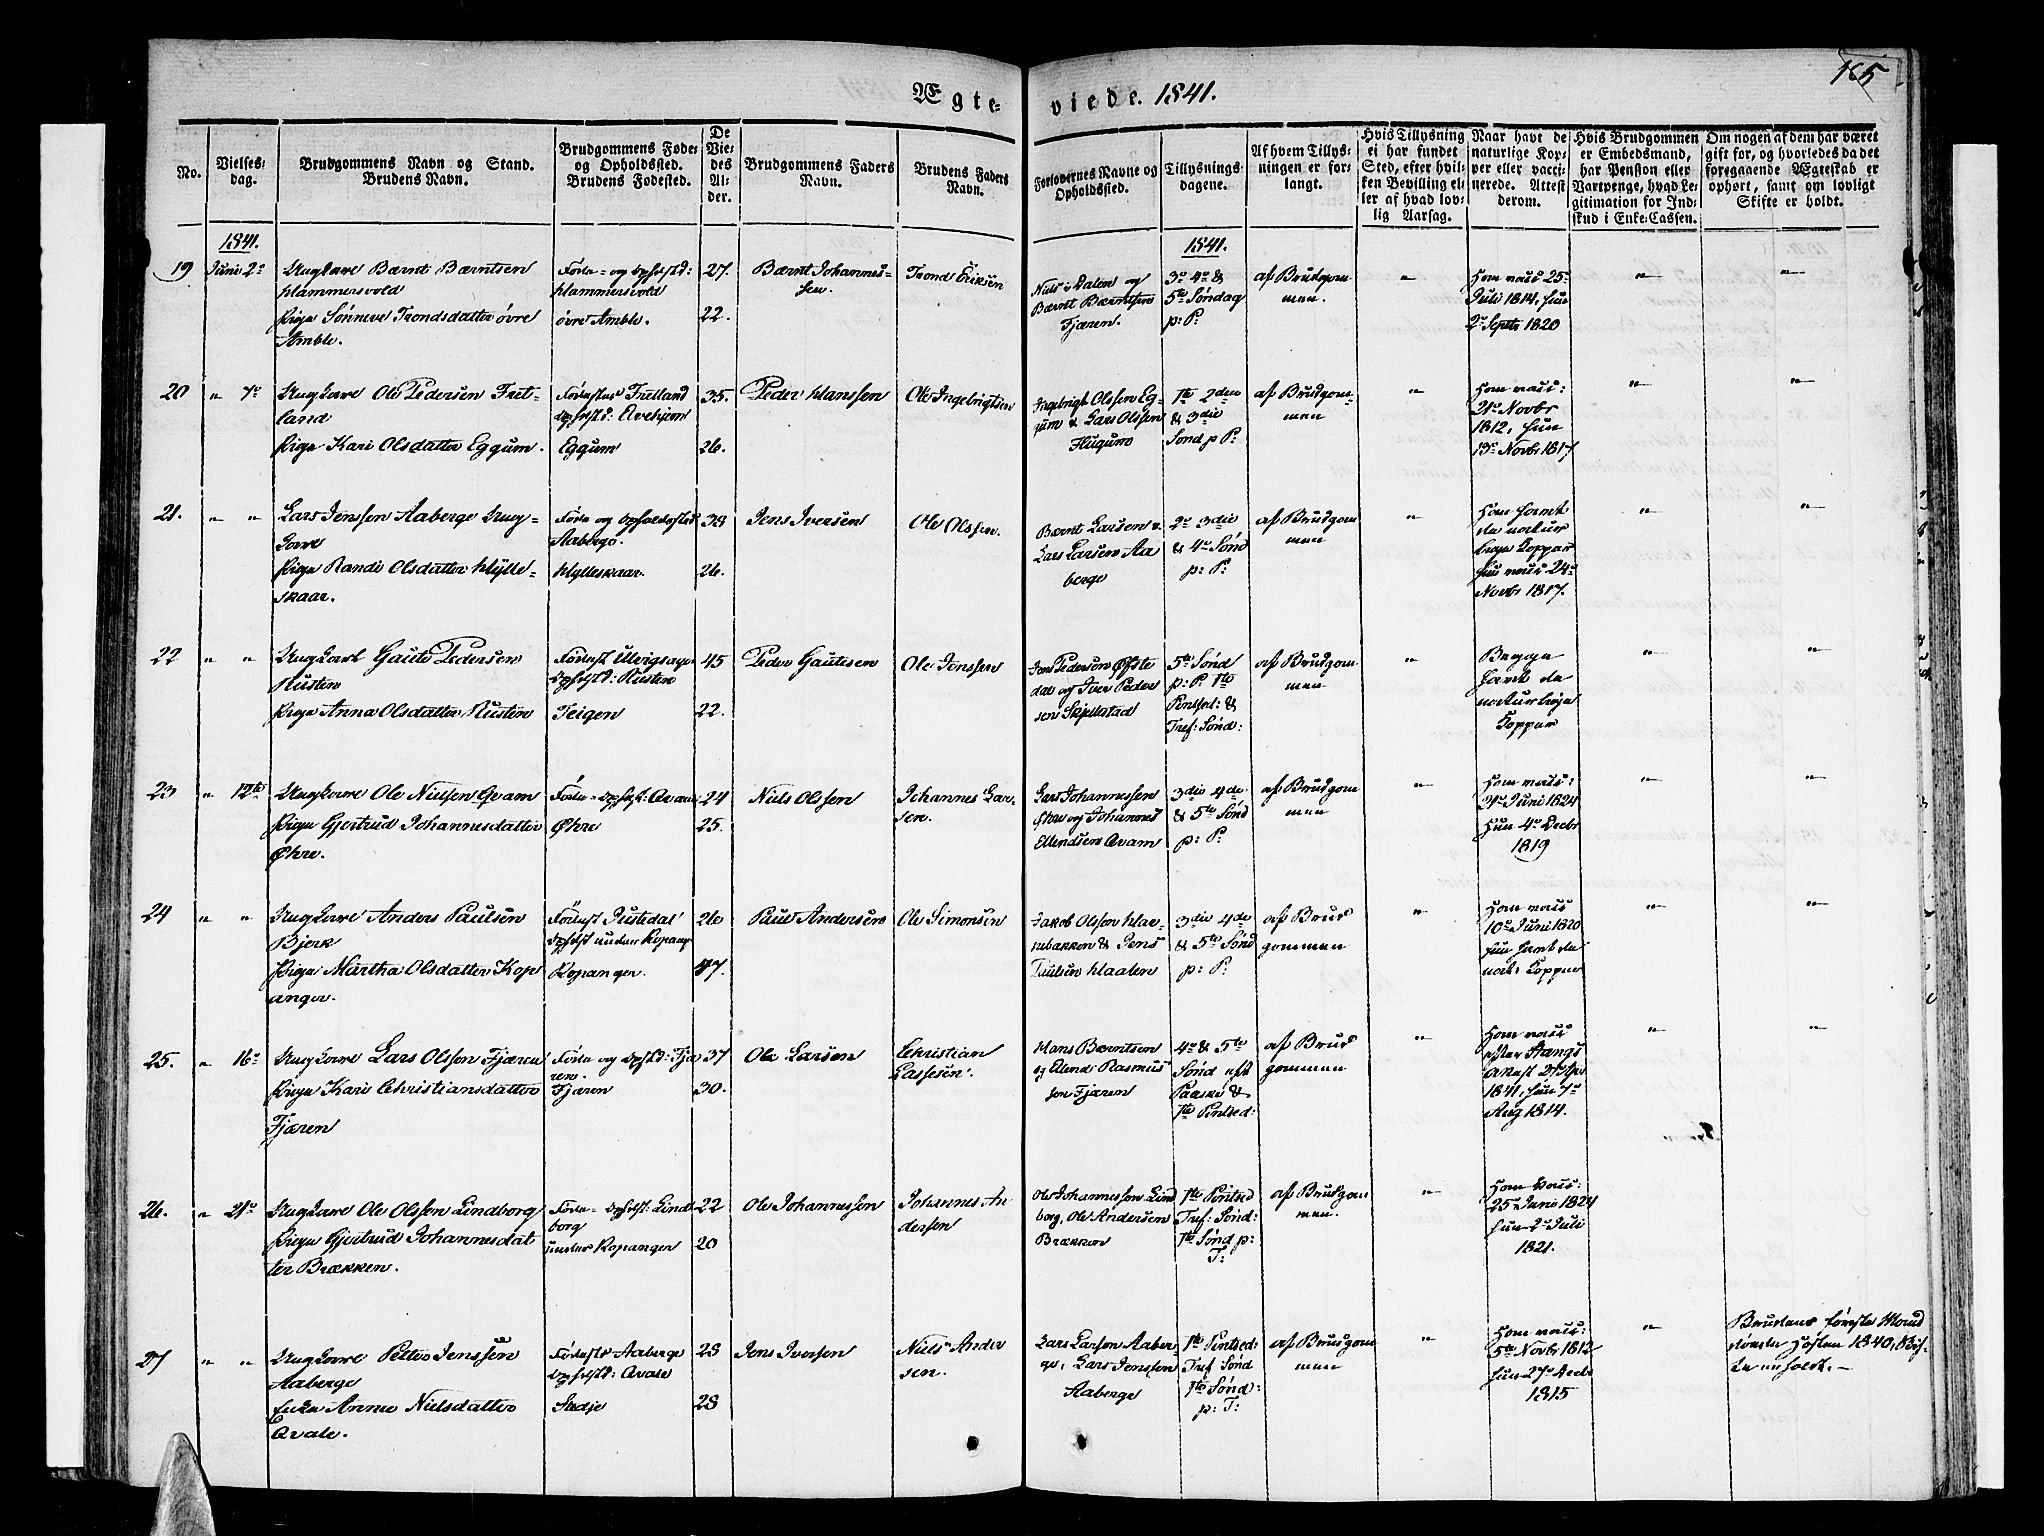 165
Ægte-viede. 1841.
No.
Vielses-
dag.
Brudgommens Navn og Stand.
Brudens Navn.
Brudgommens Føde-
og Opholdssted.
Brudens Fødested.
De
Vie-
des
Al-
der.
Brudgommens Faders
Navn.
Brudens Faders
Navn.
Forlovernes Navne og
Opholdssted.
Tillysnings-
dagene.
Af hvem Tillys-
ningen er for-
langt.
Hvis Tillysning
ei har fundet
Sted, efter hvil-
ken Bevilling el-
ler af hvad lov-
lig Aarsag.
Naar havt de
naturlige Kop-
per eller vacci-
nerede. Attest
derom.
Hvis Brudgommen
er Embedsmand,
har Pension eller
Vartpenge, hvad Le-
gitimation for Ind-
skud i Enke-Cassen.
Om nogen af dem har været
gift før, og hvorledes da det
foregaaende Ægteskab er
ophørt, samt om lovligt
Skifte er holdt.
1841.
1841.
19
Juni 2
Ungkarl Bærnt Bærntsen
Hammersvold
Pige Sønneve Trondsdatter øvre
Amble.
Føde- og Opholdst:
Hammersvold
øvre Amble.
27
22.
Bærnt Johannes-
sen.
Trond Eriksen
Niels Dalen og
Bærnt Bærntsen
Fjæren.
3 4 &
5te Søndag
p: P:
af Brudgom
men.
"
Ham vacc 25
Juli 1814, hun
2 Septr 1820
"
"
20
" 7
Ungkarl Ole Pedersen Fret-
land
Pige Kari Olsdatter Eggum.
Fødested Fretland
Opholdst:
Eggum
35.
26.
Peder Hanssen
Ole Ingebrigtsen
Ingebrigt Olssen Eg-
gum & Lars Olssen
Hugum
1te 2den
& 3die
Sønd p P:
af Brudgom-
men
"
Ham vacc:
21 Novbr
1812, hun
13 Novbr 1817
"
"
21.
" "
Lars Jenssen Aaberge Ung-
karl
Pige Randi Olsdatter Hylle-
skaar.
Føde og Opholdssted
Aaberge.
Hylleskaar.
38
26.
Jens Iversen
Ole Olssen.
Bærnt Larsen &
Lars Larsen Aa
berge
2 3die
& 4 Sønd
p: P:
af Brudgom
men
"
Ham havt
de natur
lige Kopper
hun vacc 24
Novbr 1817.
"
"
22
" "
Ungkarl Gaute Pedersen
Rusten
Pige Anna Olsdatter Rusten
Opholdst: Rusten
Teigen
45
22.
Peder Gautesen
Ole Jenssen
Jens Pedersen Øfste
dal og Iver Peder
sen Skjelstad
5te Sønd
p: P. 1te
Pintsed: &
Tref: Sønd:
af Brudgom
men
"
Begge
havt de
naturlige
Kopper
"
"
23
" 12te
Ungkarl Ole Nielsen Qvam
Pige Gjertrud Johannesdatter
Øhre.
Føde- Opholdst: Qvam
Øhre
24
25.
Niels Olssen
Johannes Lar-
sen.
Lars Johannessen
Øhre og Johannes
Ellendsen Qvam
3die 4de
& 5te Sønd
p: P:
af Brudgom
men
"
Ham vacc:
Juni 1824
Hun 4 Decbr
1819
"
"
24
" "
Ungkarl Anders Paulsen
Bjerk
Pige Martha Olsdatter Kop
anger.
Fødest Justedal
Opholdst under Kopang
Kopanger.
20
47.
Paul Andersen
Ole Simonsen
Jakob Olsson
& Jens
Paulsen Haalen
3die 4de
& 5te Sønd
p: P:
af Brud
gommen
"
Ham vacc
10 Juni 1820
hun havt de
nat: Kopper
"
"
25.
" 16
Ungkarl Lars Olsson Fjæren
Pige Kari Christiansdatter
Fjæren
Føde og Opholdst: Fjæ
ren.
Fjæren
37
30.
Ole Larsen
Christian
Lassesen.
Hans Bærntsen
og Elend: Rasmus
sen Fjæren
4 & 5te
Sønd eft
Paaske &
1te Pintsed:
af Brud
gommen
"
Ham vacc
efter Stangs
Attest
1841, hun 7
Aug 1814.
"
"
26.
" 21
Ungkarl Ole Olssen Lindborg
Pige Gjertrud Johannesdat
ter Brækken.
Føde- Opholdst: Lind
borg
under Kopanger
22
20
Ole Johannessen
Johannes An
dersen
Ole Johannessen Lind
borg, Ole Andersen
Brækken
1te Pintsed
Tref: Sønd:
1te Sønd p:
T:
af Brudgom
men.
"
Ham vacc:
25 Juni 1824
hun 2 Juli
1821.
"
"
27
" "
Ungkarl Petter Jenssen
Aaberge
Enke Anne Nielsdatter
Qvale.
Fødested Aaberge
Opholdst: Qvale
Stedje
28
28
Jens Iversen
Niels Ander
sen.
Lars Larson Aaber
ge, Lars Jenssen
Aaberge
1te Pintsed:
Tref Sønd
1te Sønd:
p: T:
af Brudgom
men
"
Ham vacc:
5te Novbr 1812
hun 27 Decbr
1815
"
Brudens første Mand
døde Høsten 1840,
holdt.-